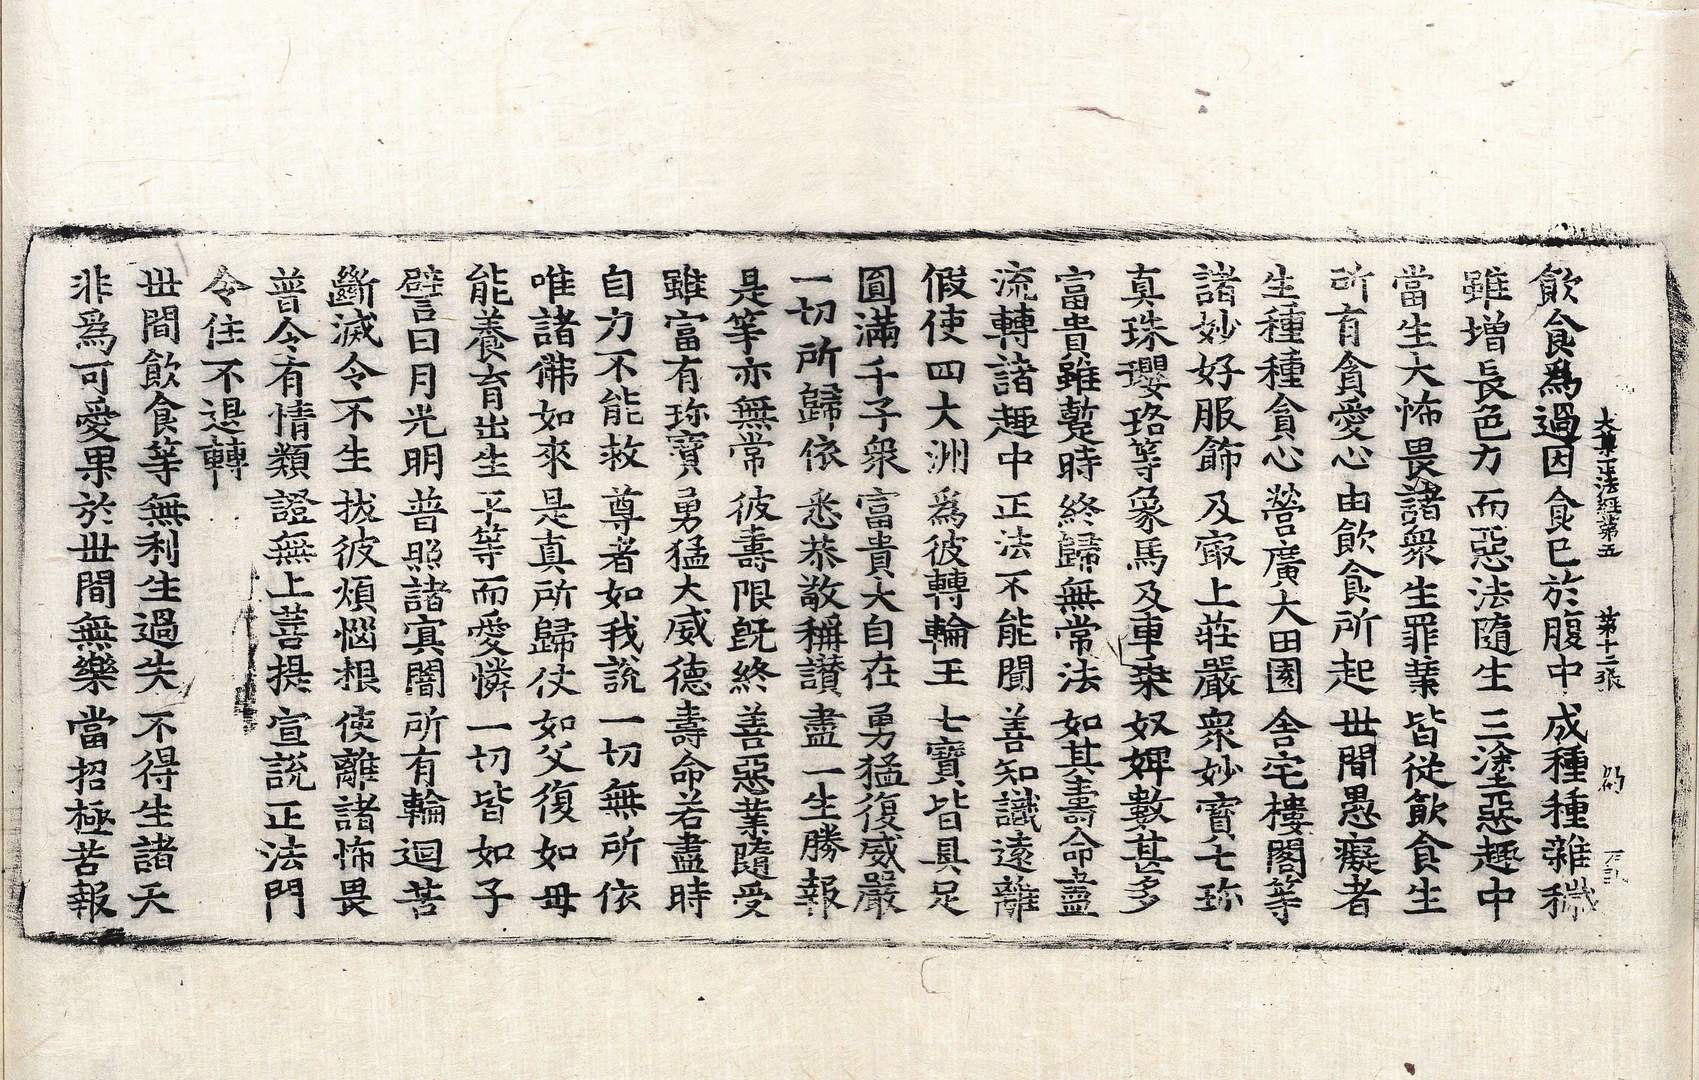 大葉正法經第五　第十二張　芴
飲食爲過因食已於腹中成種種雜穢
雖增長色力而惡法隨生三塗惡趣中
當生大怖畏諸衆生罪業皆從飲食生
所有貪愛心由飲食所起世間愚癡者
生種種貪心營廣大田園舍宅樓閣等
諸妙好服飾及寂上莊嚴衆妙寶七珎
真珠瓔珞等象馬及車乗奴婢數甚多
富貴雖蹔時終歸無常法如其壽命盡
流轉諸趣中正法不能聞善知識遠離
假使四大洲爲彼轉輪王七寶皆具足
圓滿千子衆富貴大自在勇猛復威嚴
一切所歸依悉恭敬稱讃盡一生勝報
是等亦無常彼壽限旣終善惡業隨受
雖富有珎寶勇猛大威德壽命若盡時
自力不能救尊者如我說一切無所依
唯諸佛如來是真所歸仗如父復如母
能養育出生平等而愛憐一切皆如子
譬日月光明普照諸寘闇所有輪迴苦
斷滅令不生拔彼煩惱根使離諸怖畏
普令有情類證無上菩提宣說正法門
令住不退轉
世間飲食等無利生過失不得生諸天
非爲可愛果於世間無樂當招極苦報